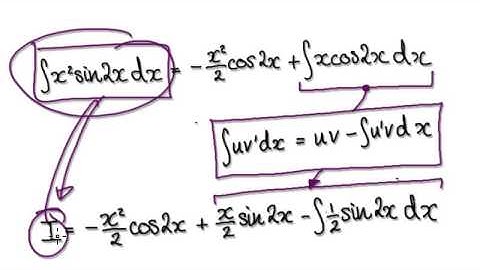 ∫x²sin2x dx = -x²/2 cos2x + ∫xcos2x dx
∫uv'dx = uv - ∫u'v dx
I = -x²/2 cos2x + x/2 sin2x - ∫1/2 sin2x dx